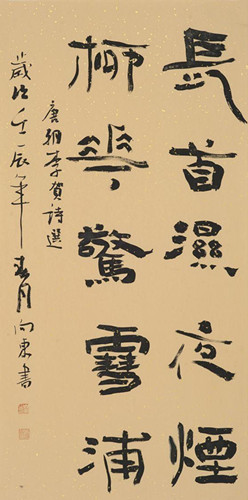 長茸濕夜煙
柳華驚雪浦
唐朝李賀詩選
歲次壬辰年春月向東書